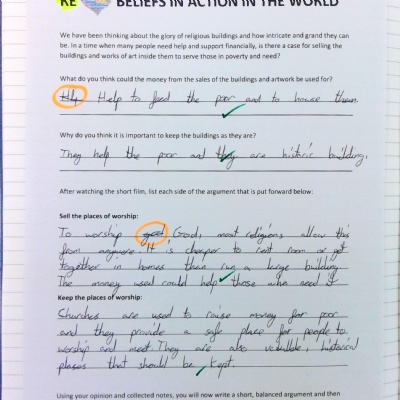 RE BELIEFS IN ACTION IN THE WORLD
We have been thinking about the glory of religious buildings and how intricate and grand they can
be. In a time when many people need help and support financially, is there a case for selling the
buildings and works of art inside them to serve those in poverty and need?
What do you think could the money from the sales of the buildings and artwork be used for?
Help to feed the poor and to house them.
Why do you think it is important to keep the buildings as they are?
They help the poor and they are historic building.
After watching the short film, list each side of the argument that is put forward below:
Sell the places of worship:
To worship god, God, most religions allow this
from anywhere. It is cheaper to rent room or get
together in homes than run a large building
The money used could help those who need it
Keep the places of worship:
Churches are used to raise money for poor
and they provide a safe place for people to
worship and meet. They are also valuable, historical
places that should be kept.
Using your opinion and collected notes, you will now write a short, balanced argument and then